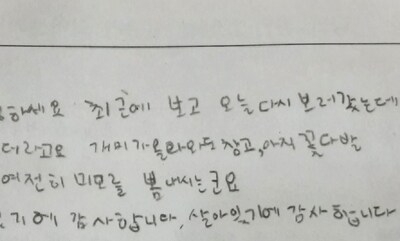 하세요 최근에 보고 오늘 다시 보러갔는데
더라고요 개미가올라와도 참고, 아직 꽃다발
여전히 미모를 뽐내시는군요
기에 감사합니다, 살아있기에 감사합니다